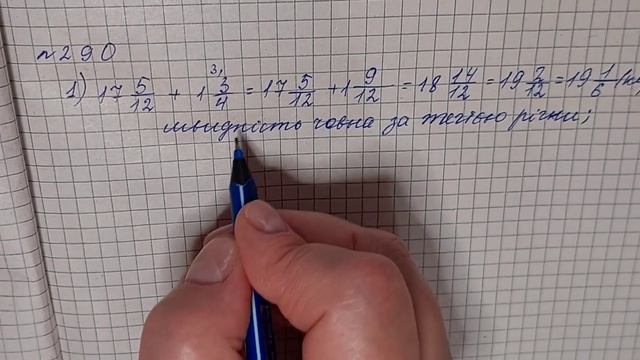 №290
1) 17 5/12 + 1 3/4 = 17 5/12 + 1 9/12 = 18 14/12 = 19 2/12 = 19 1/6 (км
швидкість човна за течією річки;